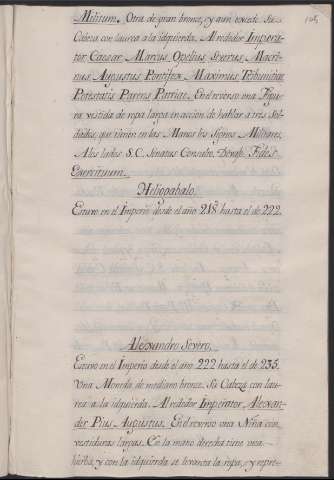 Militum. Otra de gran bronze, y aun excede. Su
Cabeza con laurea a la izquierda. Al rededor Impera-
tor Caesar Marcus Opelius Severus Macri-
nus Augustus Pontifex Maximus Tribunitiae
Potestatis Parens Patriae. En el reverso una Figu-
ra vestida de ropa larga en accion de hablar a tres Sol-
dados, que tienen en las Manos los Signos Militares.
A los lados S. C. Senatus Consulto. Debajo Fides
Exercituum.
Heliogabalo.
Estuvo en el Imperio desde el año 218 hasta el de 222.
Alexandro Severo.
Estuvo en el Imperio desde el año 222 hasta el de 235.
Una Moneda de mediano bronze. Su Cabeza con lau-
rea a la izquierda. Al rededor Imperator Alexan-
der Pius Augustus. En el reverso una Niña con
vestiduras largas. En la mano derecha tiene una
hierba, y con la izquierda se levanta la ropa, y repre-